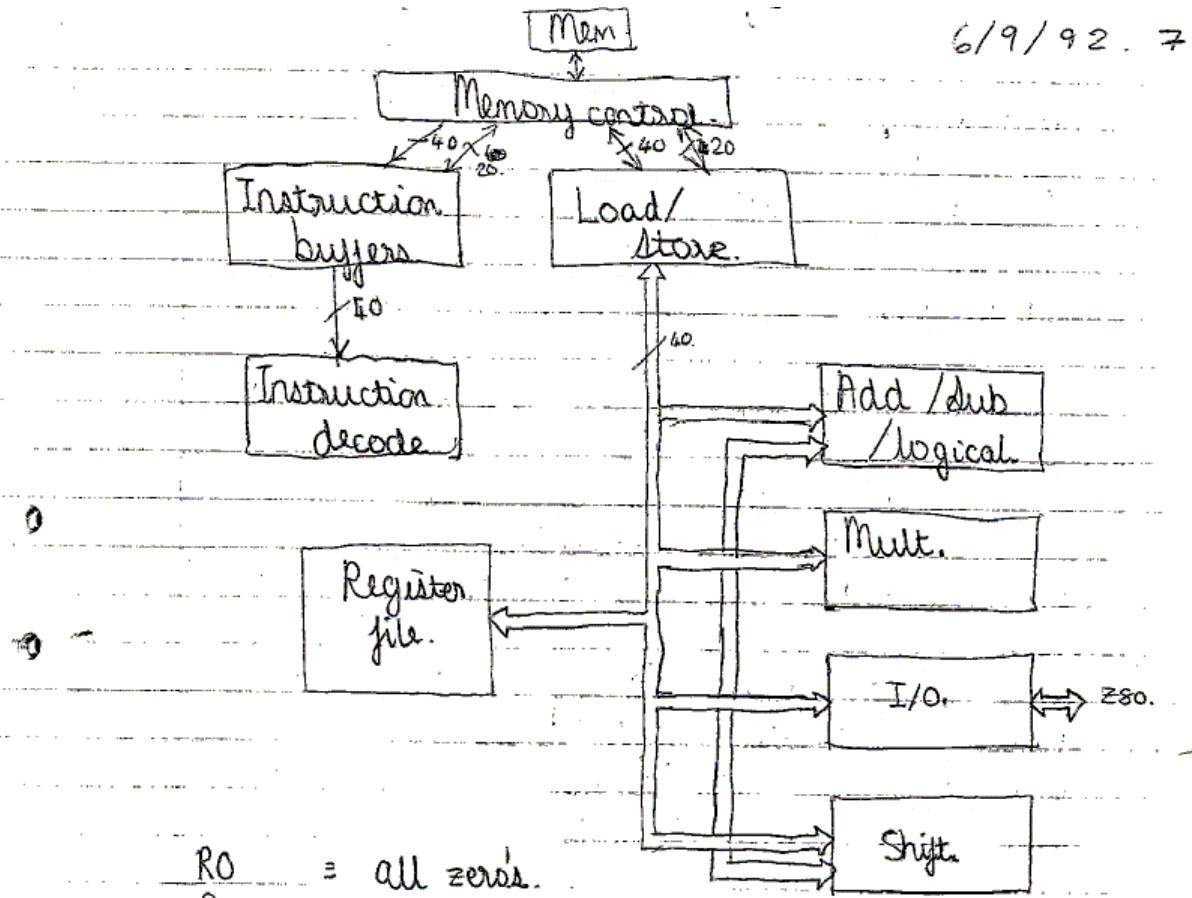 6/9/92. 7
Mem
Memory control.
40
20.
40
20
Instruction
buffers
Load/
Store.
40
40.
Instruction
decode
Add /Sub
/logical.
Mult.
Register
file.
I/O.
Z80.
Shift.
R0 ≡ all zero's.